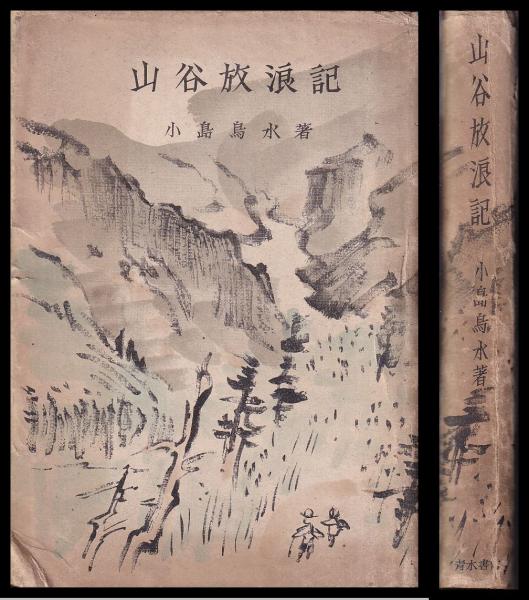 山谷放浪記
小島烏水著
山谷放浪記
小島烏水著
青木書